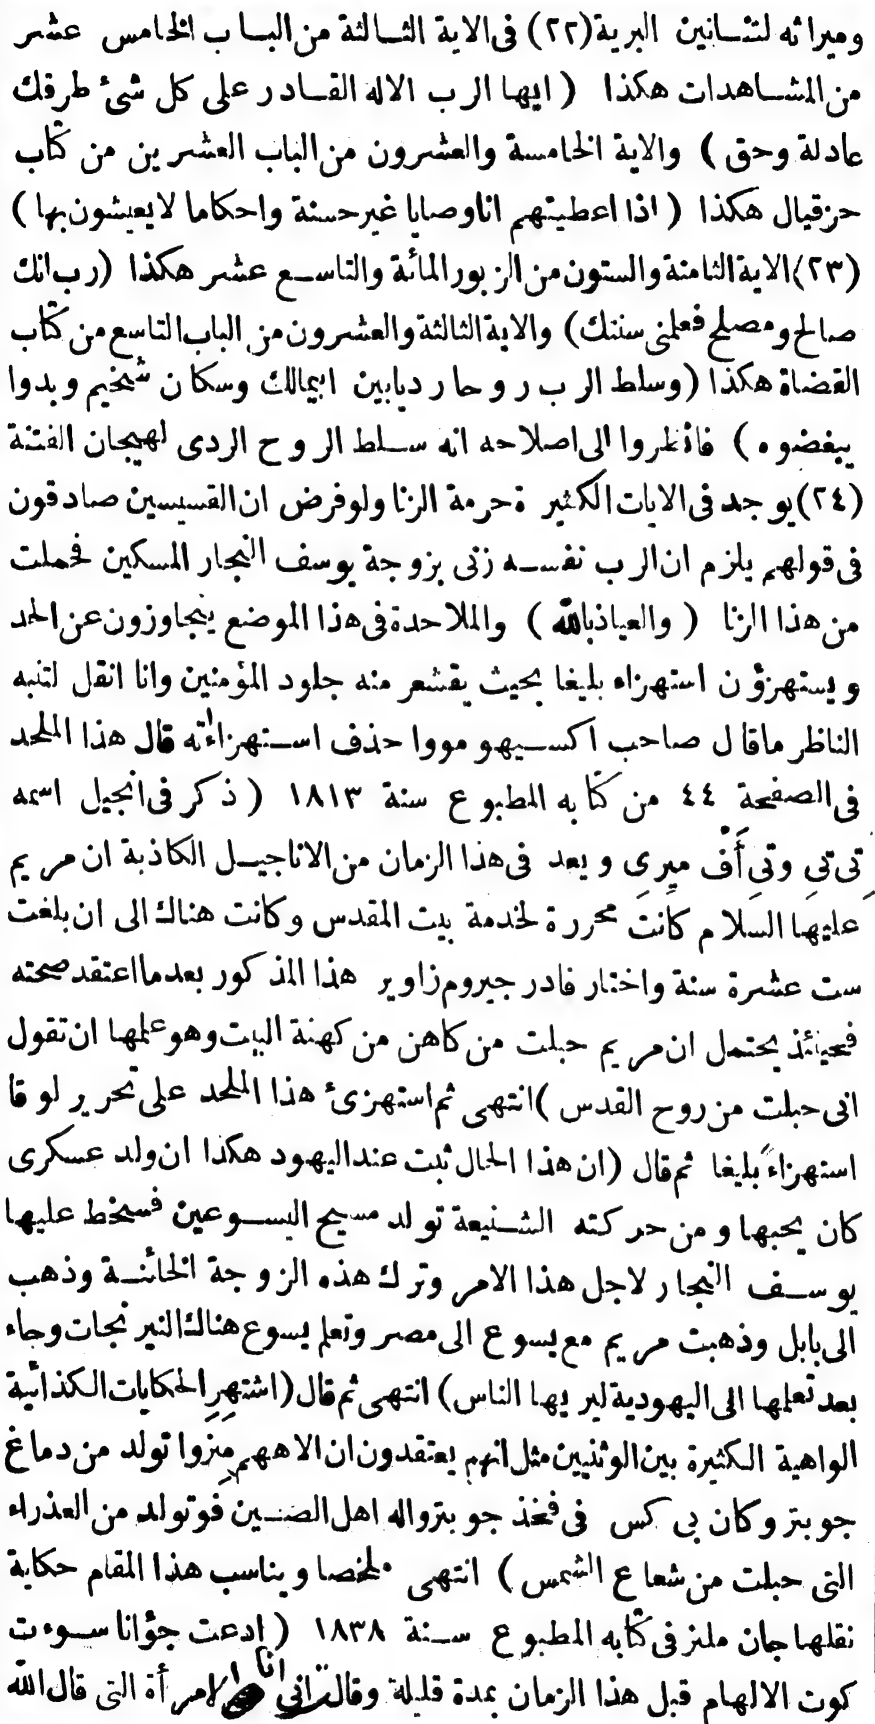 وميراثه لتنانين البرية (٢٢) فى الاية الثالثة من الباب الخامس عشر
من المشاهدات هكذا ( ايها الرب الاله القادر على كل شئ طرقك
عادلة وحق ) والاية الخامسة والعشرون من الباب العشرين من كتاب
حزقيال هكذا ( اذا اعطيتهم انا وصايا غير حسنة واحكاما لا يعيشون بها )
(٢٣) الاية الثامنة والستون من الزبور المائة والتاسع عشر هكذا (رب انك
صالح ومصلح فعلمنى سننك) والاية الثالثة والعشرون من الباب التاسع من كتاب
القضاة هكذا (وسلط الرب روحا رديا بين ابيمالك وسكان شخيم وبدوا
يبغضوه ) فانظروا الى اصلاحه انه سلط الروح الردى لهيجان الفتنة
(٢٤) يوجد فى الايات الكثيرة حرمة الزنا ولو فرض ان القسيسين صادقون
فى قولهم يلزم ان الرب نفسه زنى بزوجة يوسف النجار المسكين فحملت
من هذا الزنا ( والعياذ بالله ) والملاحدة فى هذا الموضع يتجاوزون عن الحد
ويستهزؤن استهزاء بليغا بحيث يقشعر منه جلود المؤمنين وانا انقل لتنبه
الناظر ما قال صاحب اكسيهومووا حذف استهزاءاته قال هذا الملحد
فى الصفحة ٤٤ من كتابه المطبوع سنة ١٨١٣ ( ذكر فى انجيل اسمه
تى تى وتى أف ميرى ويعد فى هذا الزمان من الاناجيل الكاذبة ان مريم
عليها السلام كانت محررة لخدمة بيت المقدس وكانت هناك الى ان بلغت
ست عشرة سنة واختار فادر جيروم زاوير هذا المذكور بعد ما اعتقد صحته
فحينئذ يحتمل ان مريم حبلت من كاهن من كهنة البيت وهو علمها ان تقول
انى حبلت من روح القدس ) انتهى ثم استهزئ هذا الملحد على تحرير لوقا
استهزاء بليغا ثم قال (ان هذا الحال ثبت عند اليهود هكذا ان ولد عسكرى
كان يحبها ومن حركته الشنيعة تولد مسيح اليسوعين فسخط عليها
يوسف النجار لاجل هذا الامر وترك هذه الزوجة الخائنة وذهب
الى بابل وذهبت مريم مع يسوع الى مصر وتعلم يسوع هناك النيرنجات وجاء
بعد تعلمها الى اليهودية ليريها الناس) انتهى ثم قال (اشتهر الحكايات الكذائية
الواهية الكثيرة بين الوثنيين مثل انهم يعتقدون ان الاههم منزوا تولد من دماغ
جوبتر وكان بى كس فى فخذ جوبتر واله اهل الصين فوتولد من العذراء
التى حبلت من شعاع الشمس ) انتهى ملخصا ويناسب هذا المقام حكاية
نقلها جان ملنز فى كتابه المطبوع سنة ١٨٣٨ ( ادعت جؤانا سوءت
كوت الالهام قبل هذا الزمان بمدة قليلة وقالت انى انا الامرأة التى قال الله